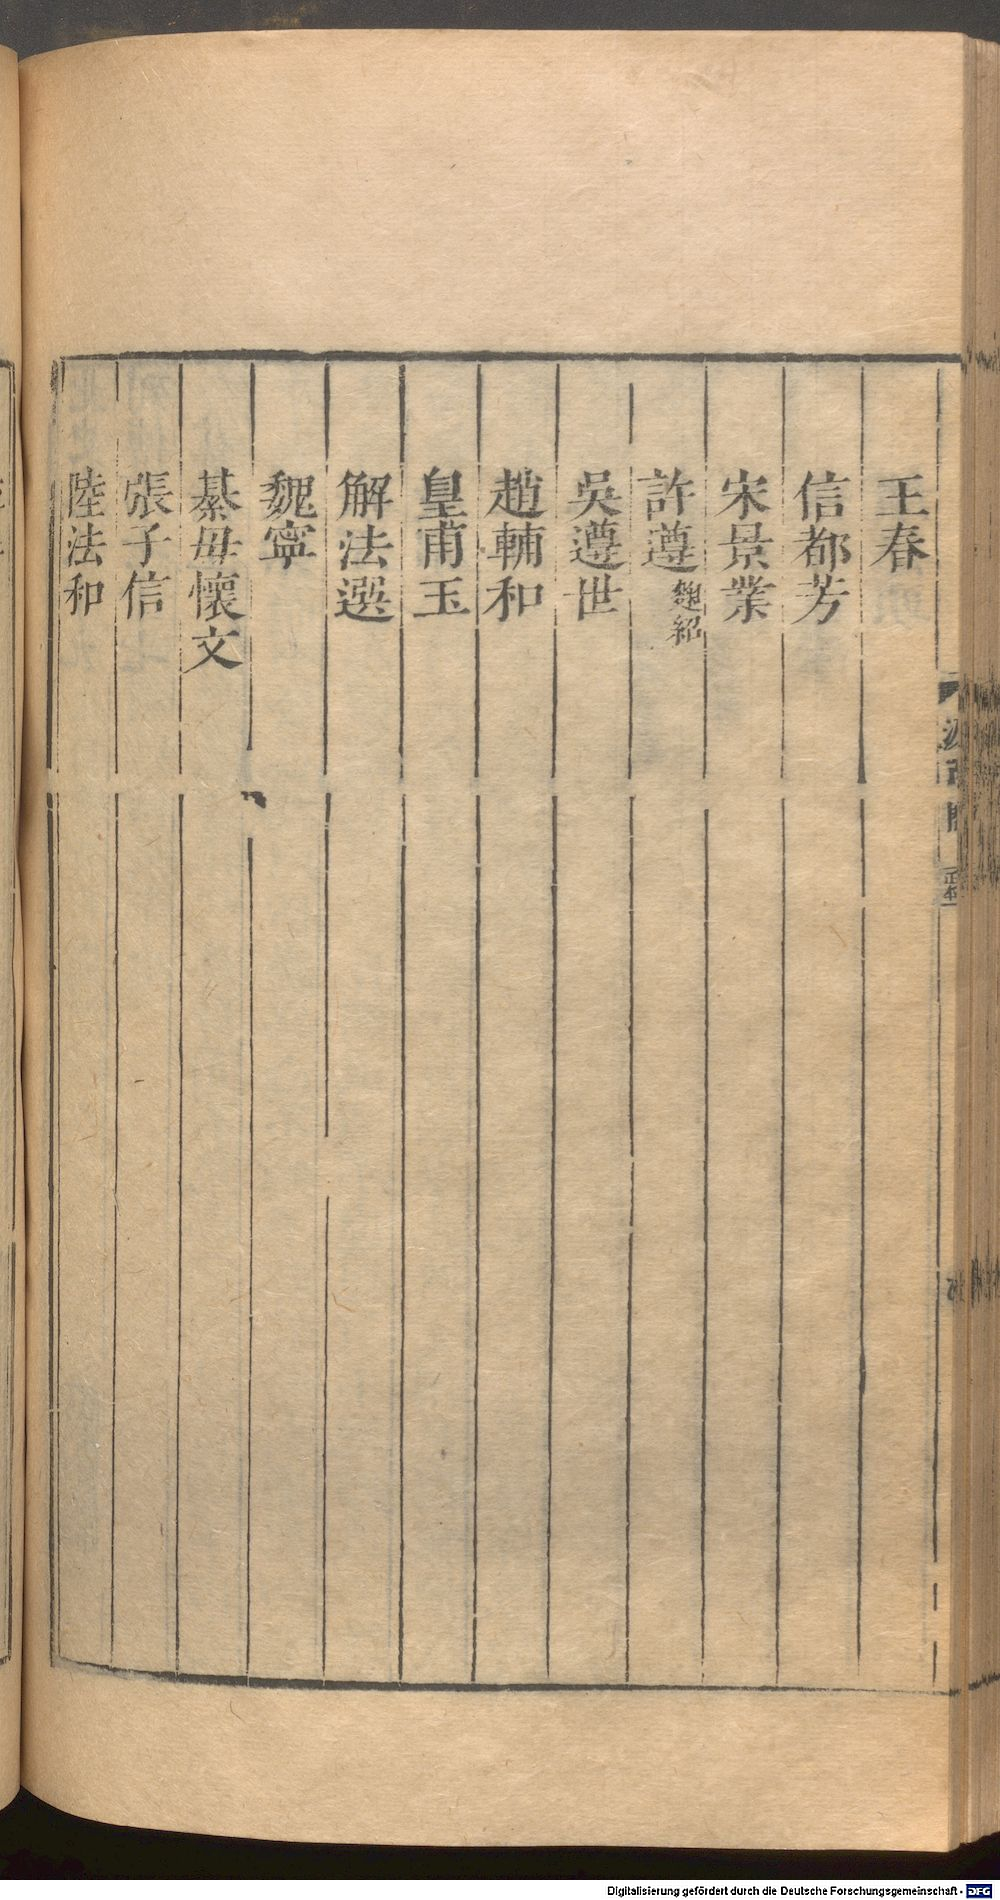 王春
信都芳
宋景業
許遵 麹紹
吳遵世
趙輔和
皇甫玉
解法選
魏寧
綦毋懷文
張子信
陸法和
Digitalisierung gefördert durch die Deutsche Forschungsgemeinschaft - DFG